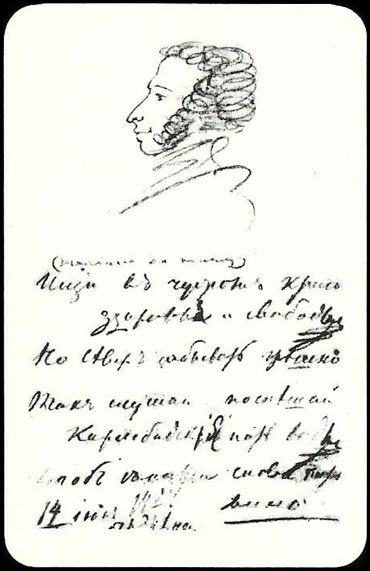 Ищи въ чужомъ краю
здоровья и свободы
Но Сѣверъ забывать грѣшно
Такъ слушай поспѣшай
Карлсбадскія пить воды
Чтобъ съ нами снова пить
14 июня вино